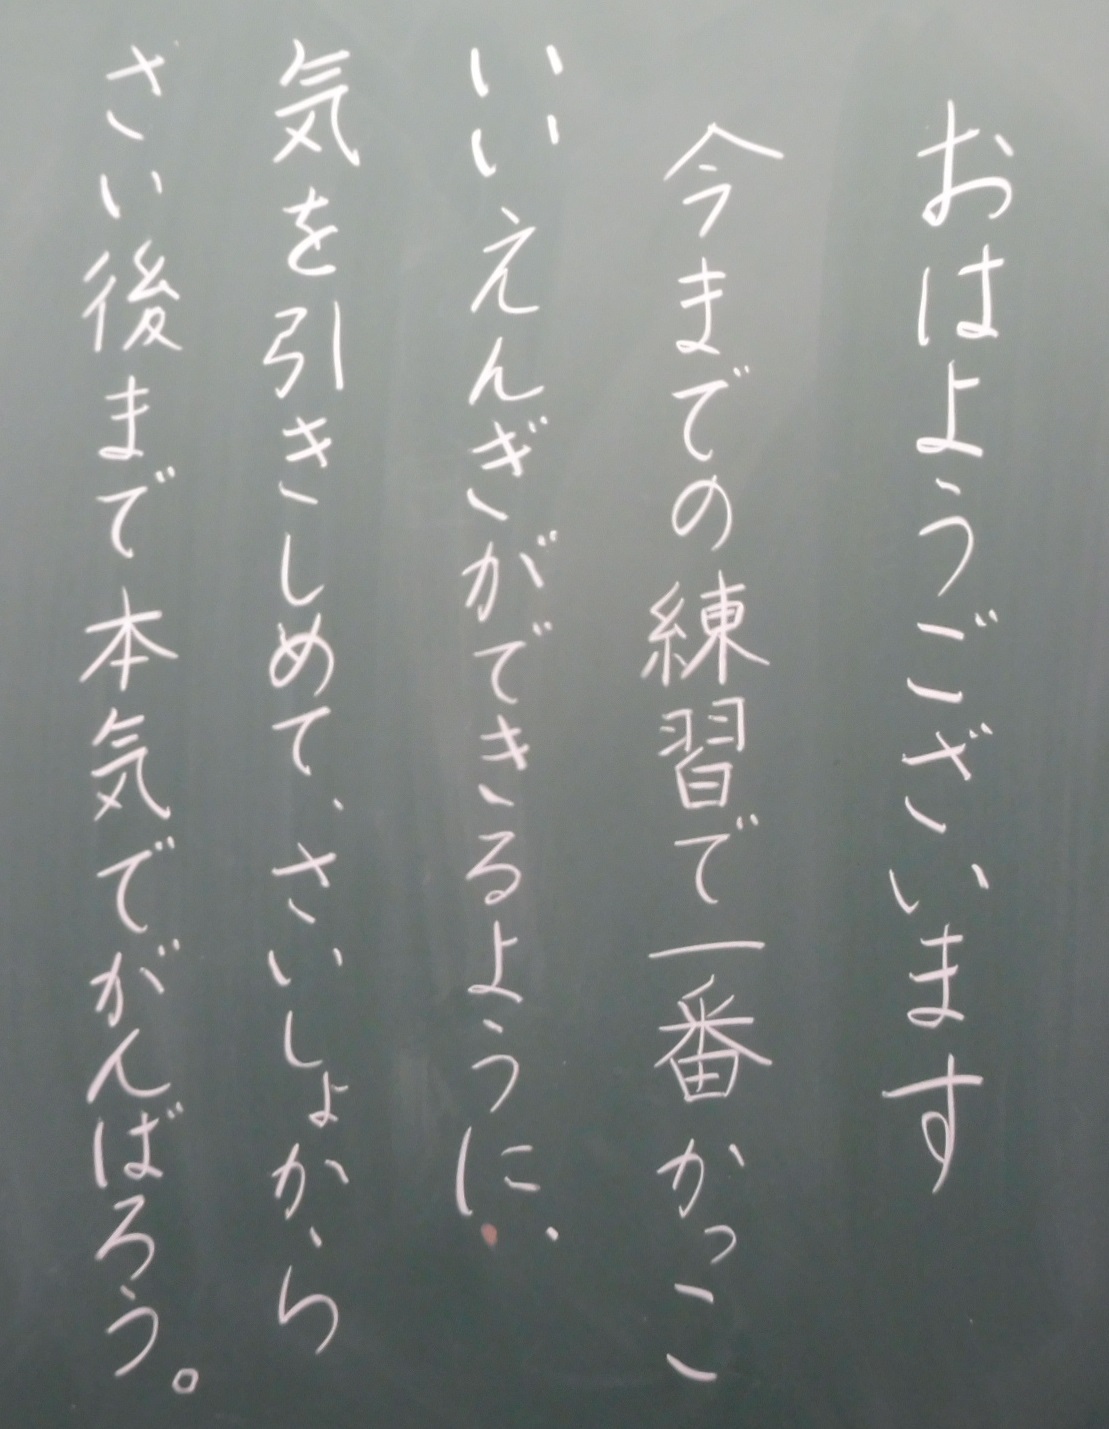 おはようございます
今までの練習で一番かっこ
いいえんぎができるように、
気を引きしめて、さいしょから
さい後まで本気でがんばろう。